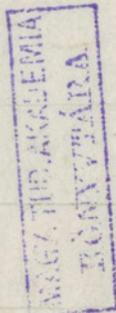 MAGY. TUD. AKADEMIA
KÖNYVTÁRA